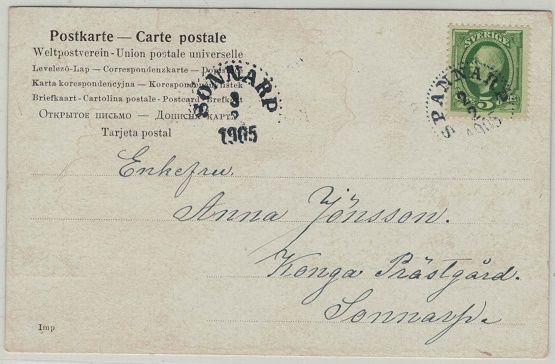 Postkarte — Carte postale
Weltpostverein - Union postale universelle
Levelező-Lap — Correspondenzkarte —
Karta korespondencyjna — Korespondenční lístek
Briefkaart - Cartolina postale - Postcard - Brefkort
Открытое письмо — Дописна карта
Tarjeta postal
SONNARP
3
1905
SVERIGE
5
SPANNARP
1905
Enkefru
Anna Jönsson.
Konga Prästgård.
Sonnarp.
Imp